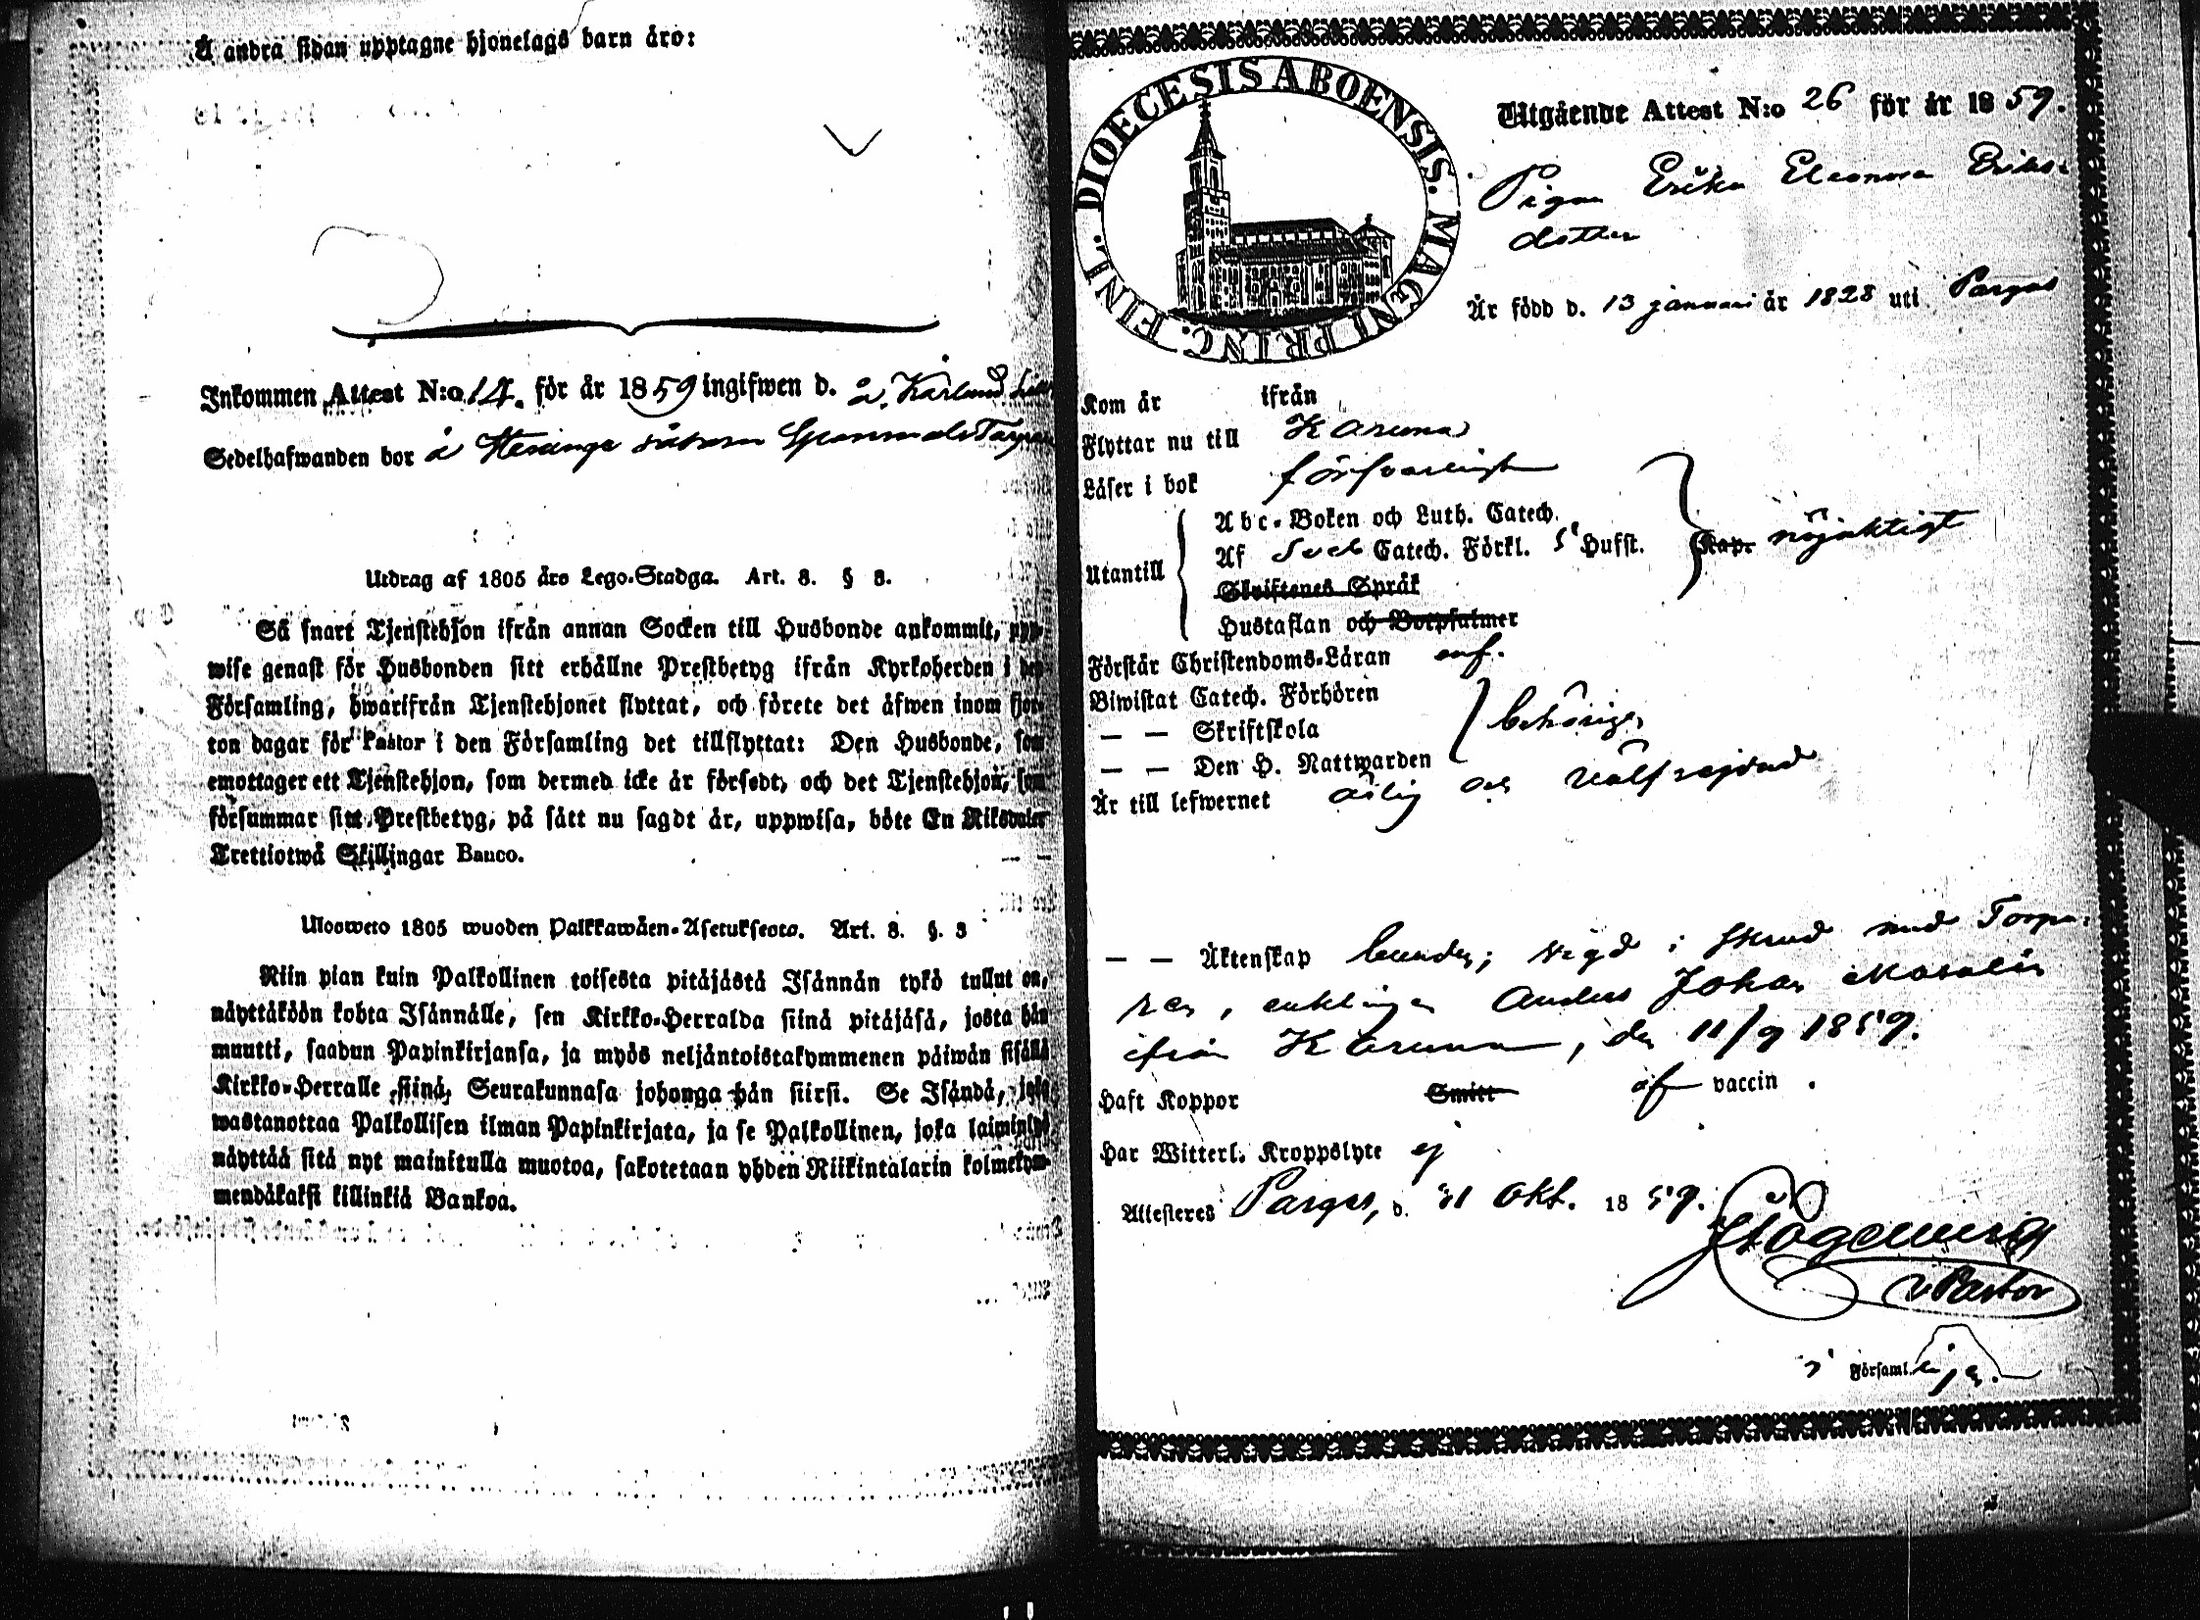 Å andra sidan upptagne hjonelags barn äro:
Inkommen Attest N:o 14. för år 1859 ingifwen d.
Sedelhafwanden bor å
Utdrag af 1805 års Lego-Stadga. Art. 8. § 8.
Så snart Tjenstehjon ifrån annan Socken till Husbonde ankommit, upp-
wise genast för Husbonden sitt erhållne Prestbetyg ifrån Kyrkoherden i den
Församling, hwarifrån Tjenstehjonet flyttat, och förete det äfwen inom fjor-
ton dagar för Pastor i den Församling det tillflyttat: Den Husbonde, som
emottager ett Tjenstehjon, som dermed icke är försedt, och det Tjenstehjon, som
försummar sitt Prestbetyg, på sätt nu sagdt är, uppwisa, böte En Riksdaler
Trettiotwå Skillingar Banco.
Ulosweto 1805 wuoden Palkkawäen-Asetuksesta. Art. 8. §. 3
Niin pian kuin Palkollinen toisesta pitäjästä Isännän tykö tullut on,
näyttäköön kohta Isännälle, sen Kirkko-Herralda siinä pitäjäsä, josta hän
muutti, saadun Papinkirjansa, ja myös neljäntoistakymmenen päiwän sisällä
Kirkko-Herralle siinä Seurakunnasa johonga hän siirsi. Se Isändä, joka
wastanottaa Palkollisen ilman Papinkirjata, ja se Palkollinen, joka laiminlyö
näyttää sitä nyt mainitulla muotoa, sakotetaan yhden Riikintalarin kolmekym-
mendäkaksi killinkiä Bankoa.
FINL. DIOECESIS ABOENSIS. MAGNI PRINC.
Utgående Attest N:o 26 för år 1859.
Pigan Erika Eleonora Eriks-
dotter
Är född d. 13 januari år 1828 uti Pargas
Kom år ifrån
Flyttar nu till Karuna
Läser i bok försvarligt
Abc-Boken och Luth. Catech.
Utantill Af Sveb Catech. Förkl. 5 Hufst. Kap. nöjaktigt
Skriftenes Språk
Hustaflan och Botpsalmer
Förstår Christendoms-Läran
Biwistat Catech. Förhören
— — Skriftskola behörigen
— — Den H. Nattwarden
Är till lefwernet ärlig och välfrejdad
— — Äktenskap vigd i med Torpa-
ren, enklingen Anders Johan
ifrån Karuna, den 11/9 1859.
Haft Koppor Smitt af vaccin.
Har Witterl. Kroppslyte ej
Attesteras Pargas, d. 31 Okt. 1859.
v Pastor
i Församlingen.